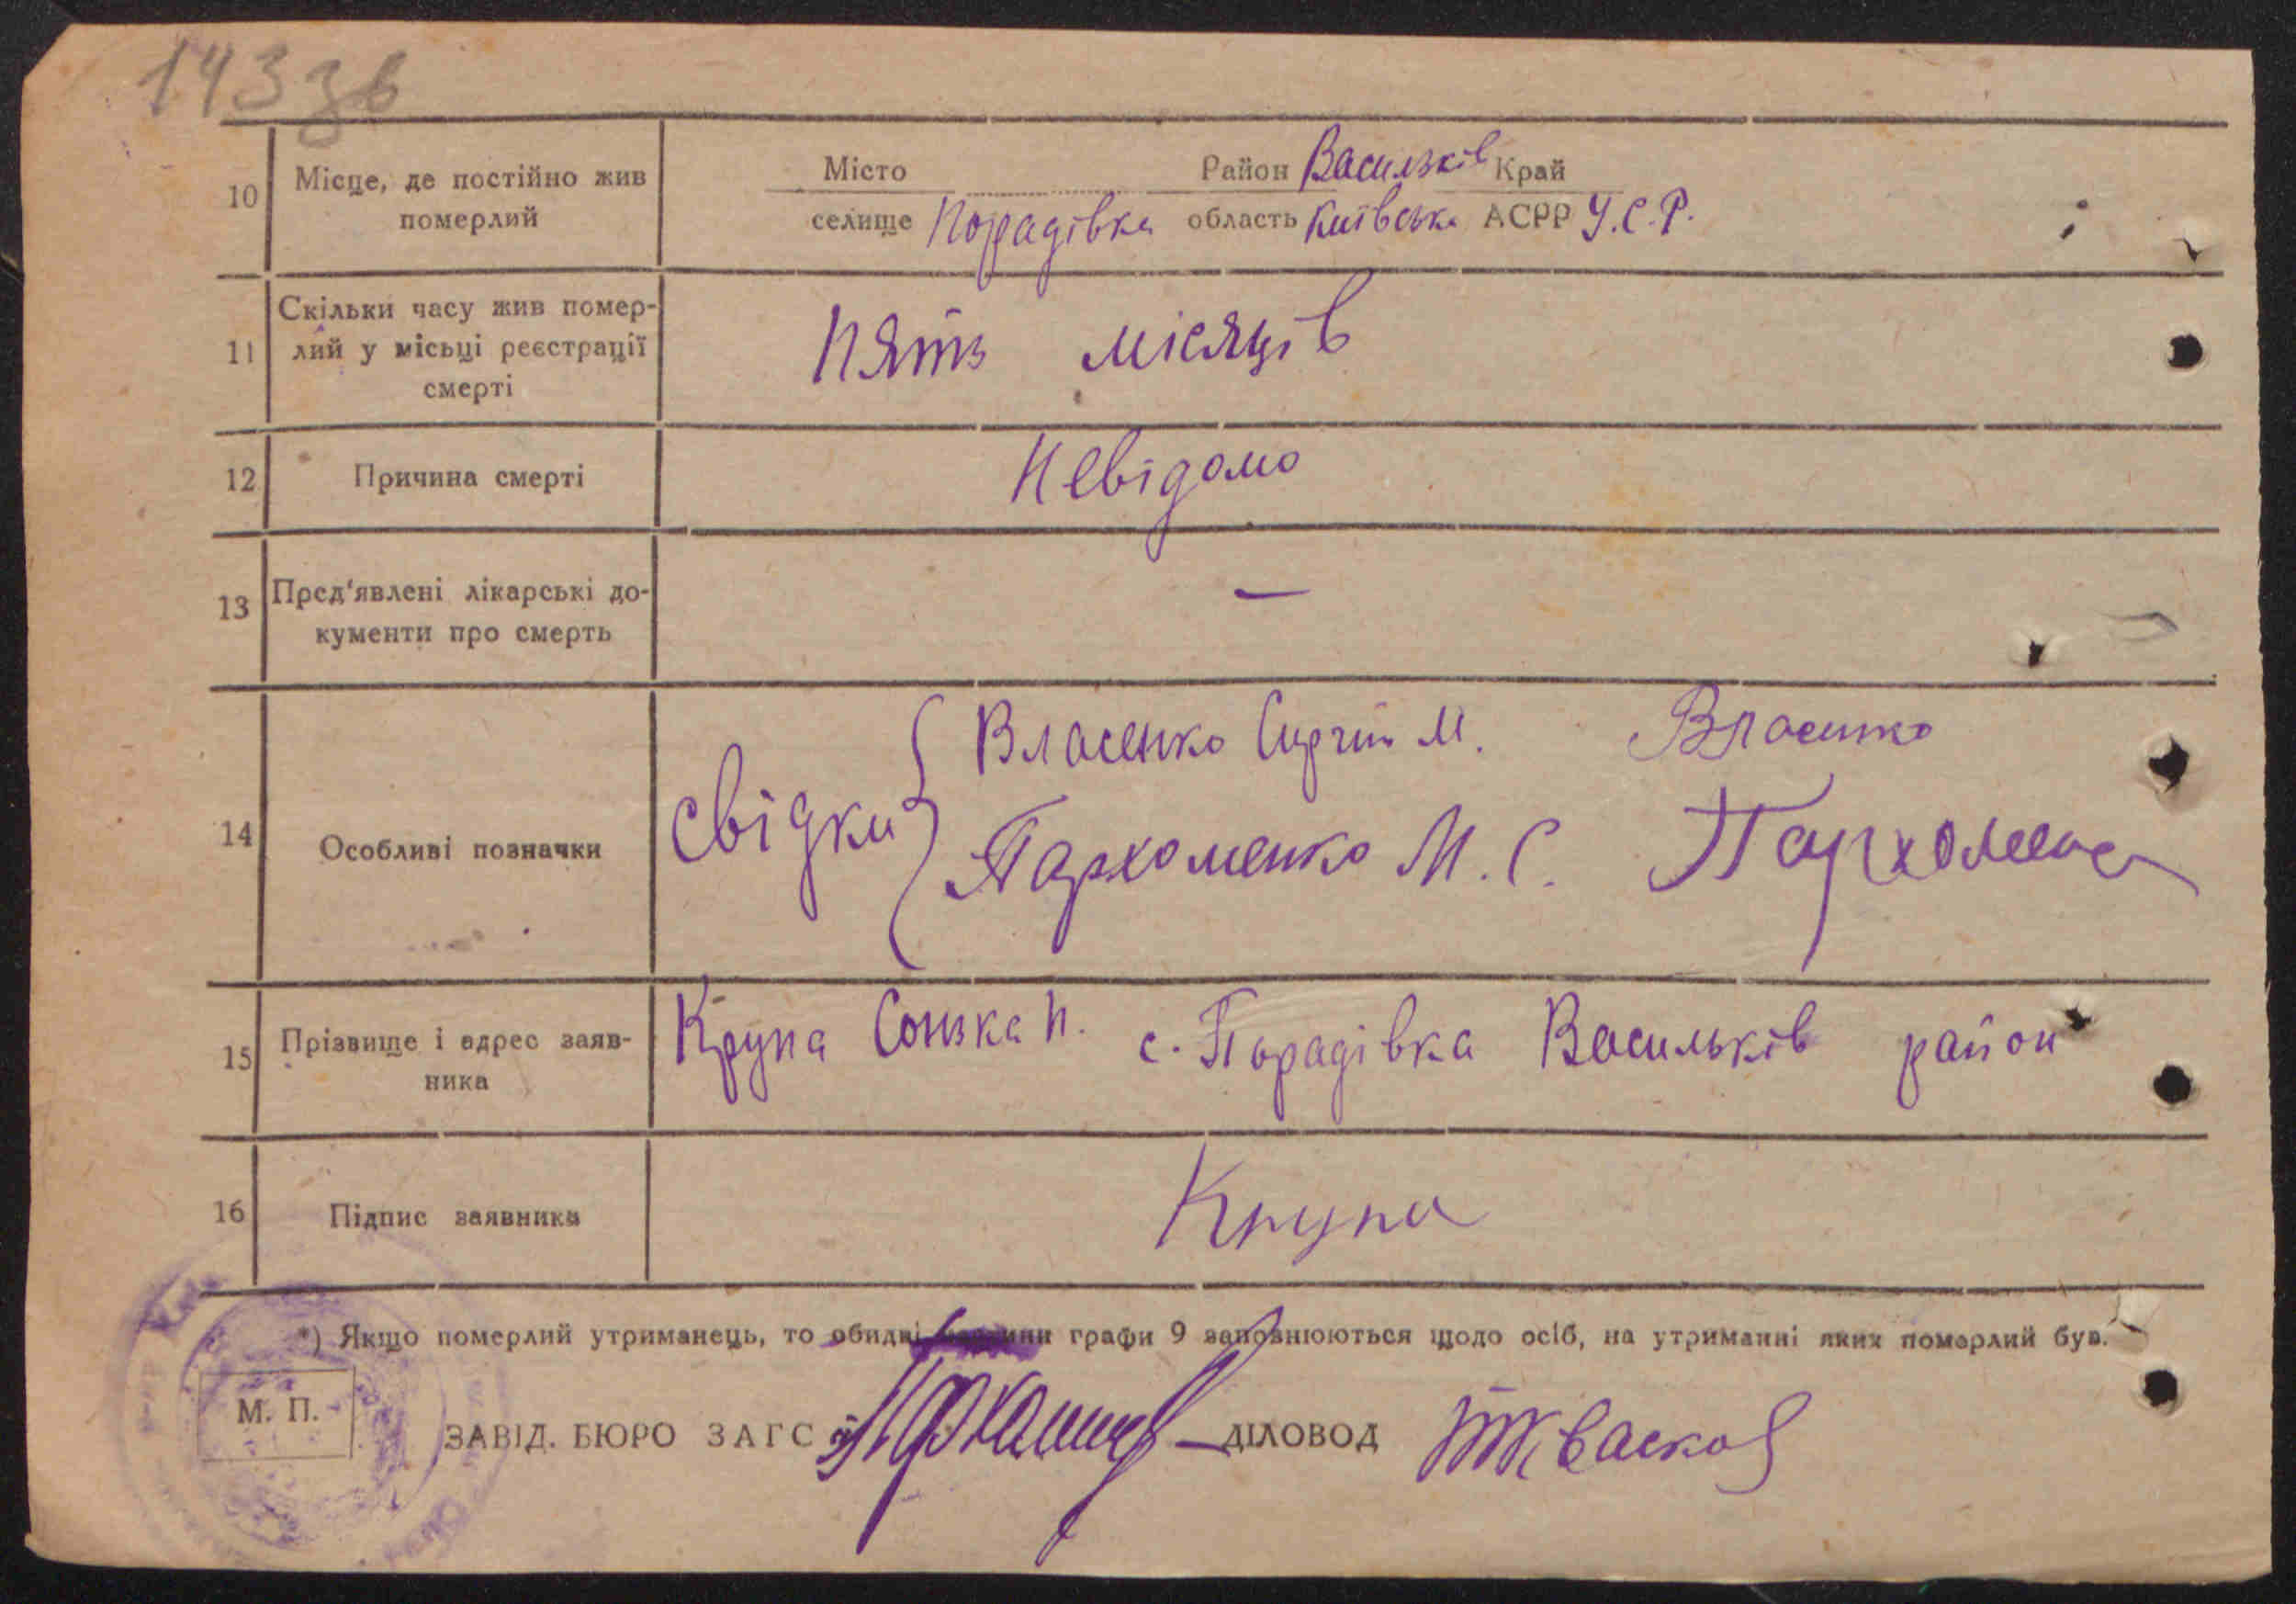 143 зв
10 Місце, де постійно жив померлий
Місто Район Васильків Край
селище Порадівка область Київська АСРР У.С.Р.
11 Скільки часу жив помер-
лий у місьці реєстрації
смерті
Пять місяців
12 Причина смерті Невідомо
13 Пред'явлені лікарські до-
кументи про смерть
—
14 Особливі позначки
свідки
Власенко Сергій М. Власенко
Пархоменко М. С. Пархоменко
15 Прізвище і адрес заяв-
ника
Крупа Сонька П. с. Порадівка Васильків район
16 Підпис заявника Крупа
*) Якщо померлий утриманець, то обидві графи 9 заповнюються щодо осіб, на утриманні яких померлий був.
М. П.
ЗАВІД. БЮРО ЗАГС ДІЛОВОД